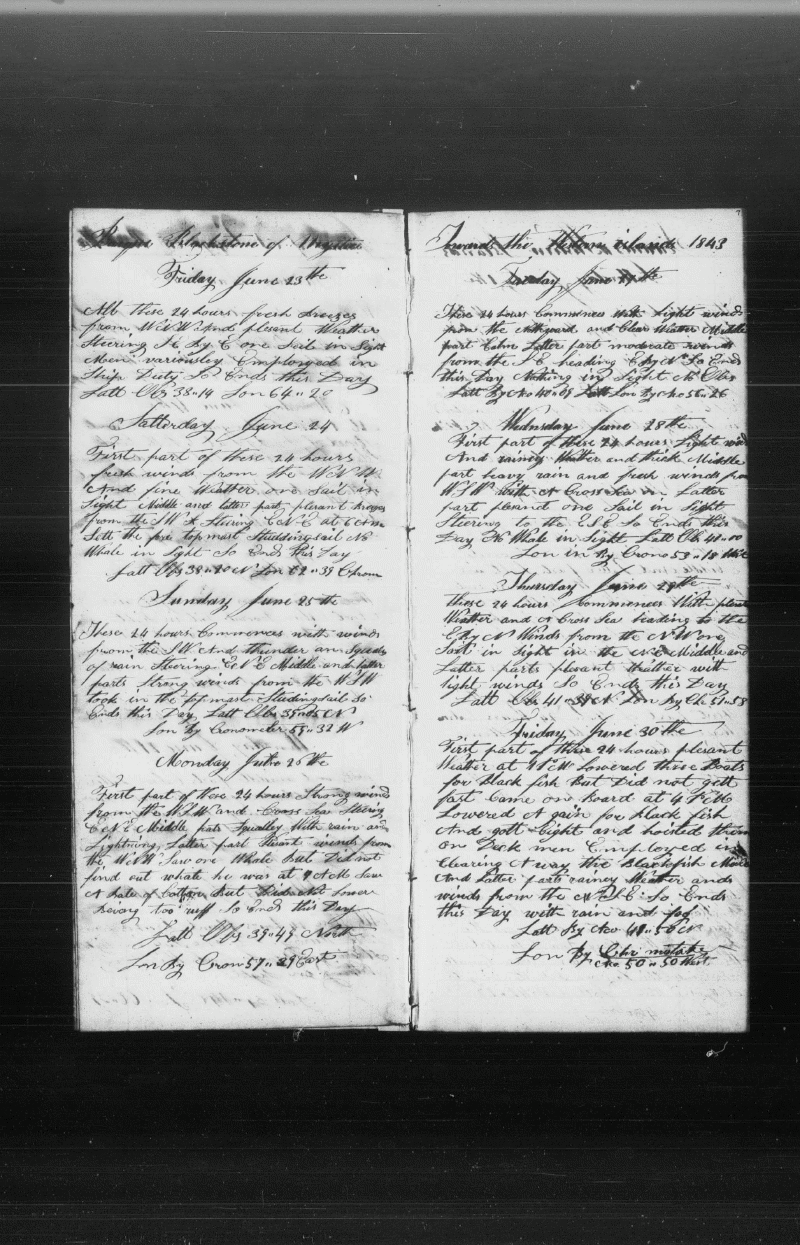 Barque Blackstone of Mystic
Friday June 23th
All these 24 hours fresh breezes
from WNW And plesent Weather
Steering SE By E one Sail in Sight
Men variousley Employed in
Ships Duty So Ends this Day
Latt Obs 38"14 Lon 64"20
Satterday June 24
First part of these 24 hours
fresh winds from the WNW
And fine Weather one Sail in
Sight Middle and latter part plesent breezes
from the SW Steering ENE at 6 Am
Sett the fore top mast Studdingsail No
Whale in Sight So Ends this Day
Latt Obs 38"20 N Lon 62"39 Cronom
Sunday June 25th
These 24 hours Commences with winds
from the SW And thunder an Squalls
of rain Steering ENE Middle and latter
parts Strong winds from the WSW
took in the top mast Studingsail So
Ends this Day Latt Obs 38" N
Lon By Cronometer 59"32 W
Monday June 26th
First part of these 24 hours Strong winds
from the WSW and Cross Sea Steering
ENE Middle parts Squalley With rain and
Lightning Latter part winds from
the WNW Saw one Whale But Did not
find out what he was at 9 AM Saw
A hale of But Did Not Lower
Beiong too ruff So Ends this Day
Latt Obs 39"49 North
Lon By Cron 57"29 East
Towards the Western islands 1843
Tuesday June 27th
These 24 hours Commences With Light winds
from the Nothward and Clear Weather Middle
part Calm Latter part moderate winds
from the SE heading E By N So Ends
this Day Nothing in Sight No Obs
Latt By Acc 40"09 Lon By Acc 56"26
Wednsday June 28th
First part of these 24 hours Light wind
And rainey Weather and thick Middle
part heavy rain and fresh winds from
WSW with A Cross Sea on Latter
part plesent one Sail in Sight
Steering to the ESE So Ends this
Day No Whale in Sight Latt Obs 41"00
Lon in By Crono 53"18 West
Thursday June 29th
these 24 hours Commences With plesent
Weather and A Cross Sea heading to the
E By N Winds from the NW one
Sail in Sight in the NE Middle and
Latter parts plesant Weather with
light winds So Ends this Day
Latt Obs 41"39 N Lon By Chr 51"53
Friday June 30th
First part of these 24 hours plesant
Weather at 1 PM Lowered three Boats
for Black fish But Did not gett
fast Came on Board at 4 PM
Lowered A gain for black fish
And gott Eight and hoisted them
on Deck men Employed in
Clearing A way the Blackfish Middle
And Latter parts rainey Weather and
winds from the NSE So Ends
this Day with rain and fog
Latt By Acc 41"56 N
Lon By Chr mistake
Chr 50"50 West